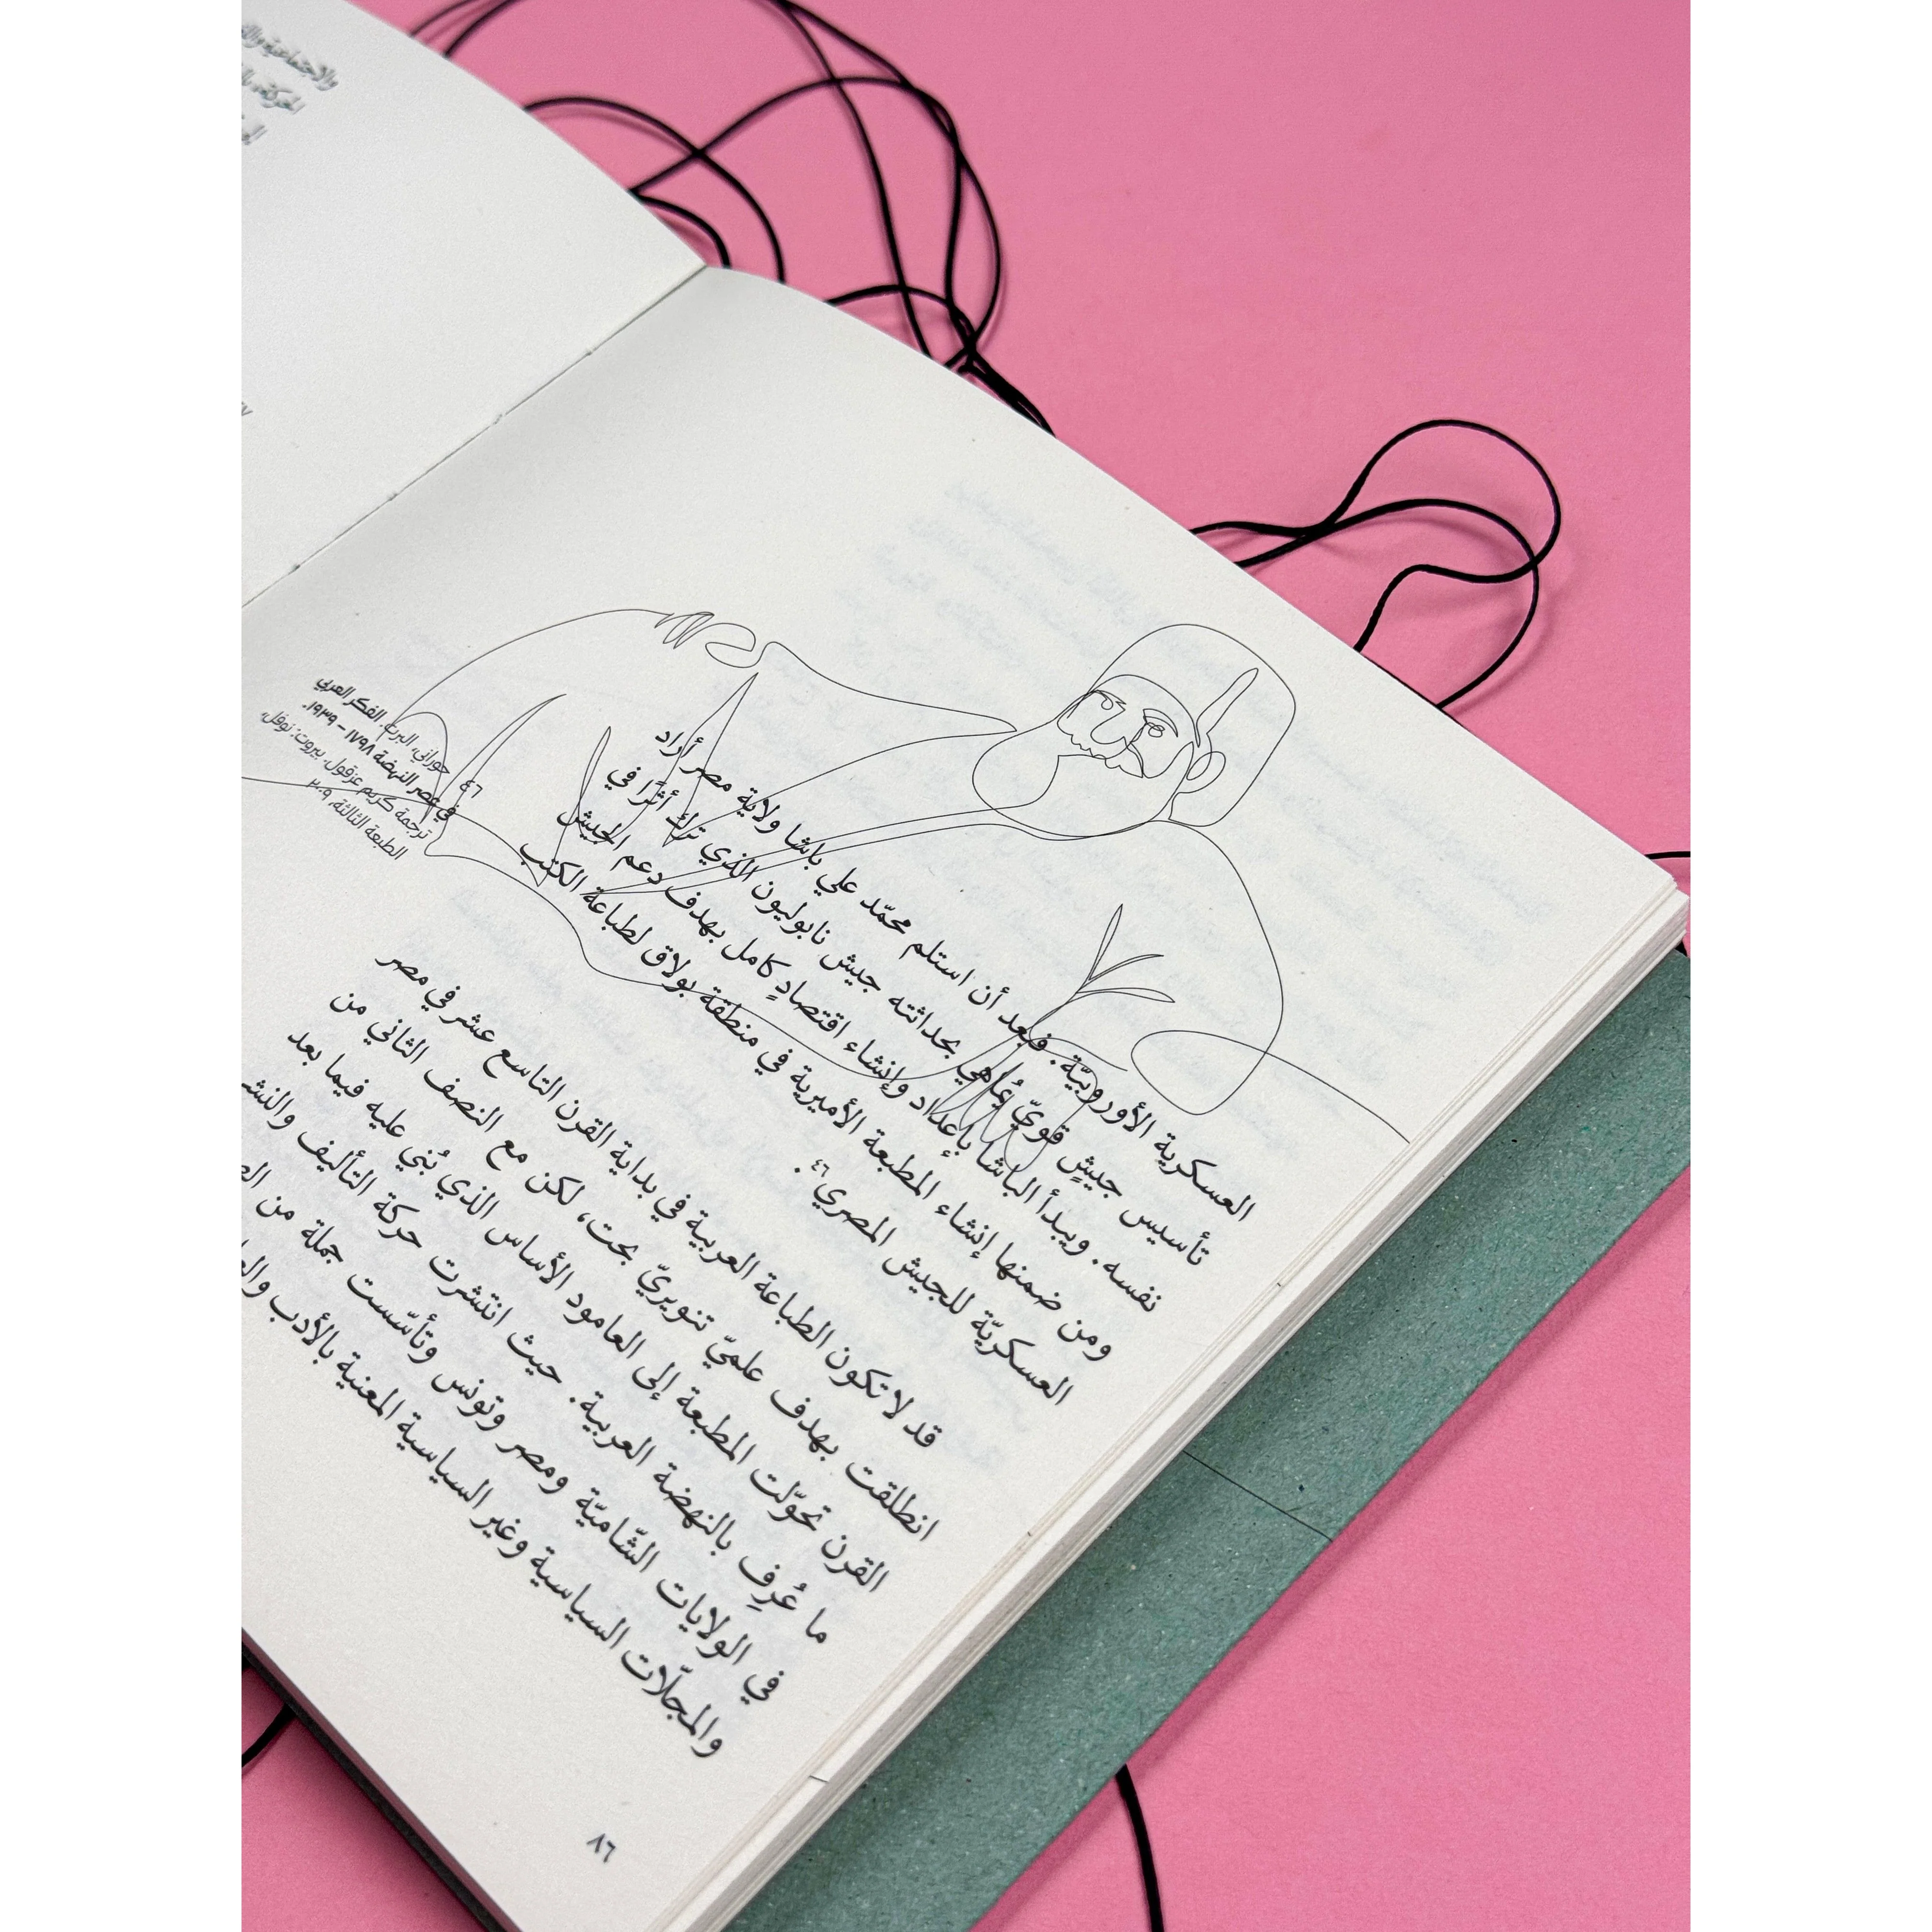 العسكرية الأوروبيّة. فبعد أن استلم محمّد علي باشا ولاية مصر أراد
تأسيس جيشٍ قويّ يُماهي بحداثته جيش نابوليون الذي ترك أثرًا في
نفسه. ويبدأ الباشا بإعداد وإنشاء اقتصادٍ كامل بهدف دعم الجيش
ومن ضمنها إنشاء المطبعة الأميرية في منطقة بولاق لطباعة الكتب
العسكريّة للجيش المصري٤٦.
قد لا تكون الطباعة العربية في بداية القرن التاسع عشر في مصر
انطلقت بهدف علميّ تنويريّ بحت، لكن مع النصف الثاني من
القرن تحوّلت المطبعة إلى العامود الأساس الذي بُني عليه فيما بعد
ما عُرِف بالنهضة العربية. حيث انتشرت حركة التأليف والنشر
في الولايات الشّاميّة ومصر وتونس وتأسّست جملة من
والمجلّات السياسية وغير السياسية المعنية بالأدب
٤٦
حوراني، البرت. الفكر العربي
في عصر النهضة ١٧٩٨ – ١٩٣٩.
ترجمة كريم عزقول، بيروت: نوفل،
الطبعة الثالثة، ٢٠٠٩
٨٦